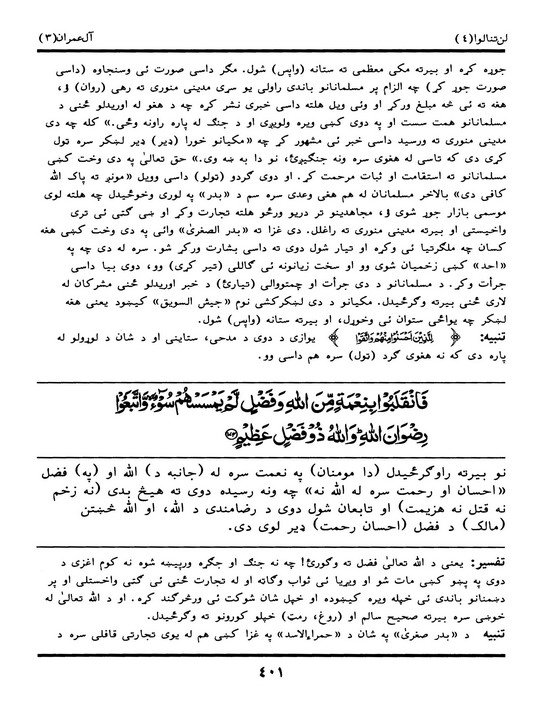 لن تنالوا(٤)
آل عمران(٣)
جوړه کړه او بیرته مکې معظمې ته ستانه (واپس) شول. مګر داسې صورت ئې وسنجاوه (داسې
صورت جوړ کړ) چه الزام پر مسلمانانو باندې راولې یو سړی مدینې منورې ته رهي (روان) ؤ،
هغه ته ئې څه مبلغ ورکړ او وئې ویل هلته داسې خبرې نشر کړه چه د هغو له اوریدلو ځنې د
مسلمانانو همت سست او په دوی کښې ویره ولویږي او د جنګ له پاره راونه وځي.» کله چه دی
مدینې منورې ته ورسید داسې خبر ئې مشهور کړ چه «مکیانو خورا (ډیر) ډیر لښکر سره ټول
کړی دی که تاسې له هغوی سره ونه جنګیږئ، نو دا به ښه وي.» حق تعالیٰ په دې وخت کښې
مسلمانانو ته استقامت او ثبات مرحمت کړ. او دوی ګردو (ټولو) داسې وویل «مونږ ته پاک الله
کافي دی» بالاخر مسلمانان له هم هغې وعدې سره سم د «بدر» په لوري وخوځیدل چه هلته لوی
موسمي بازار جوړ شوی ؤ، مجاهدینو تر دریو ورځو هلته تجارت وکړ او ښې ګټې ئې ترې
واخیستې او بیرته مدینې منورې ته راغلل. دې غزا ته «بدر الصغریٰ» وائي په دې وخت کښې هغه
کسان چه ملګرتیا ئې وکړه او تیار شول دوی ته داسې بشارت ورکړ شو. سره له دې چه په
«احد» کښې زخمیان شوي وو او سخت زیانونه ئې ګاللي (تیر کړي) وو، دوی بیا داسې
جرأت وکړ. د مسلمانانو د دې جرأت او چمتووالي (تیارئ) د خبر اوریدلو ځنې مشرکان له
لارې ځنې بیرته وګرځیدل. مکیانو د دې لښکرکشۍ نوم «جیش السویق» کیښود یعنې هغه
لښکر چه یواځې ستوان ئې وخوړل، او بیرته ستانه (واپس) شول.
تنبیه: ﴿ لِلَّذِينَ أَحْسَنُوا مِنْهُمْ وَاتَّقَوْا ﴾ یوازې د دوی د مدحې، ستاینې او د شان د لوړولو له
پاره دی که نه هغوی ګرد (ټول) سره هم داسې وو.
فَانْقَلَبُوْا بِنِعْمَةٍ مِّنَ اللهِ وَفَضْلٍ لَّمْ يَمْسَسْهُمْ سُوْٓءٌ ۙ وَّاتَّبَعُوْا
رِضْوَانَ اللهِ ؕ وَاللهُ ذُوْ فَضْلٍ عَظِيْمٍ ﴿۱۷۴﴾
نو بیرته راوګرځیدل (دا مومنان) په نعمت سره له (جانبه د) الله او (په) فضل
«احسان او رحمت سره له الله نه» چه ونه رسیده دوی ته هیڅ بدي (نه زخم
نه قتل نه هزیمت) او تابعان شول دوی د رضامندۍ د الله، او الله څښتن
(مالک) د فضل (احسان رحمت) ډیر لوی دی.
تفسیر: یعنې د الله تعالیٰ فضل ته وګورئ! چه نه جنګ او جګړه ورپیښه شوه نه کوم اغزی د
دوی په پښو کښې مات شو او ویړیا ئې ثواب وګاته او له تجارت ځنې ئې ګټې واخستلې او پر
دښمنانو باندې ئې خپله ویره کیښوده او خپل شان شوکت ئې ورڅرګند کړ. او د الله تعالیٰ له
خوښې سره بیرته صحیح سالم او (روغ، رمټ) خپلو کورونو ته وګرځیدل.
تنبیه د «بدر صغریٰ» په شان د «حمراءالاسد» په غزا کښې هم له یوې تجارتي قافلې سره د
٤٠١